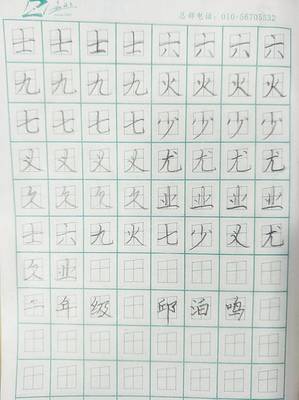 总部电话：010-56705532
士士士士六六六六
九九九九火火火火
七七七七少少少少
叉叉叉叉尤尤尤尤
久久久久业业业业
士六九火七少叉尤
久业
二年级 邱泊鸣